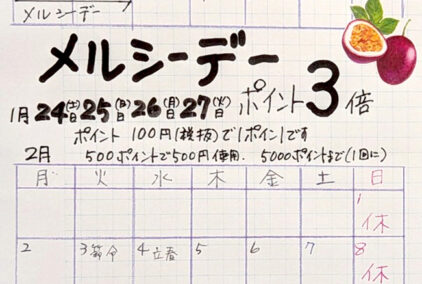 メルシーデー
メルシーデー
1月24(土)25(日)26(月)27(火) ポイント3倍
ポイント 100円(税抜)で1ポイントです
2月 500ポイントで500円使用. 5000ポイントまで(1回に)
月 火 水 木 金 土 日
1
休
2 3節分 4立春 5 6 7 8
休